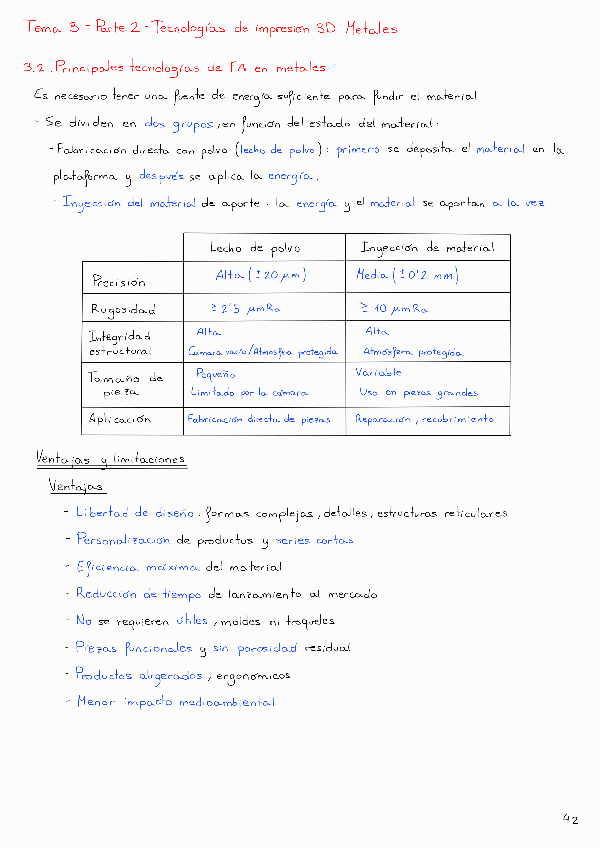 Tema 3 - Parte 2 - Tecnologías de impresión 3D Metales
3.2. Principales tecnologías de FA en metales
Es necesario tener una fuente de energía suficiente para fundir el material
- Se dividen en dos grupos, en función del estado del material:
- Fabricación directa con polvo (lecho de polvo): primero se deposita el material en la
plataforma y después se aplica la energía.
- Inyección del material de aporte: la energía y el material se aportan a la vez
Lecho de polvo Inyección de material
Precisión Alta (± 20 μm) Media (± 0'2 mm)
Rugosidad ≥ 2'5 μmRa ≥ 10 μmRa
Integridad Alta Alta
estructural Cámara vacío/Atmosfera protegida Atmósfera protegida
Tamaño de Pequeño Variable
pieza Limitado por la cámara Uso en piezas grandes
Aplicación Fabricación directa de piezas Reparación, recubrimiento
Ventajas y limitaciones
Ventajas
- Libertad de diseño: formas complejas, detalles, estructuras reticulares
- Personalización de productos y series cortas
- Eficiencia máxima del material
- Reducción de tiempo de lanzamiento al mercado
- No se requieren útiles, moldes ni troqueles
- Piezas funcionales y sin porosidad residual
- Productos aligerados, ergonómicos
- Menor impacto medioambiental
42